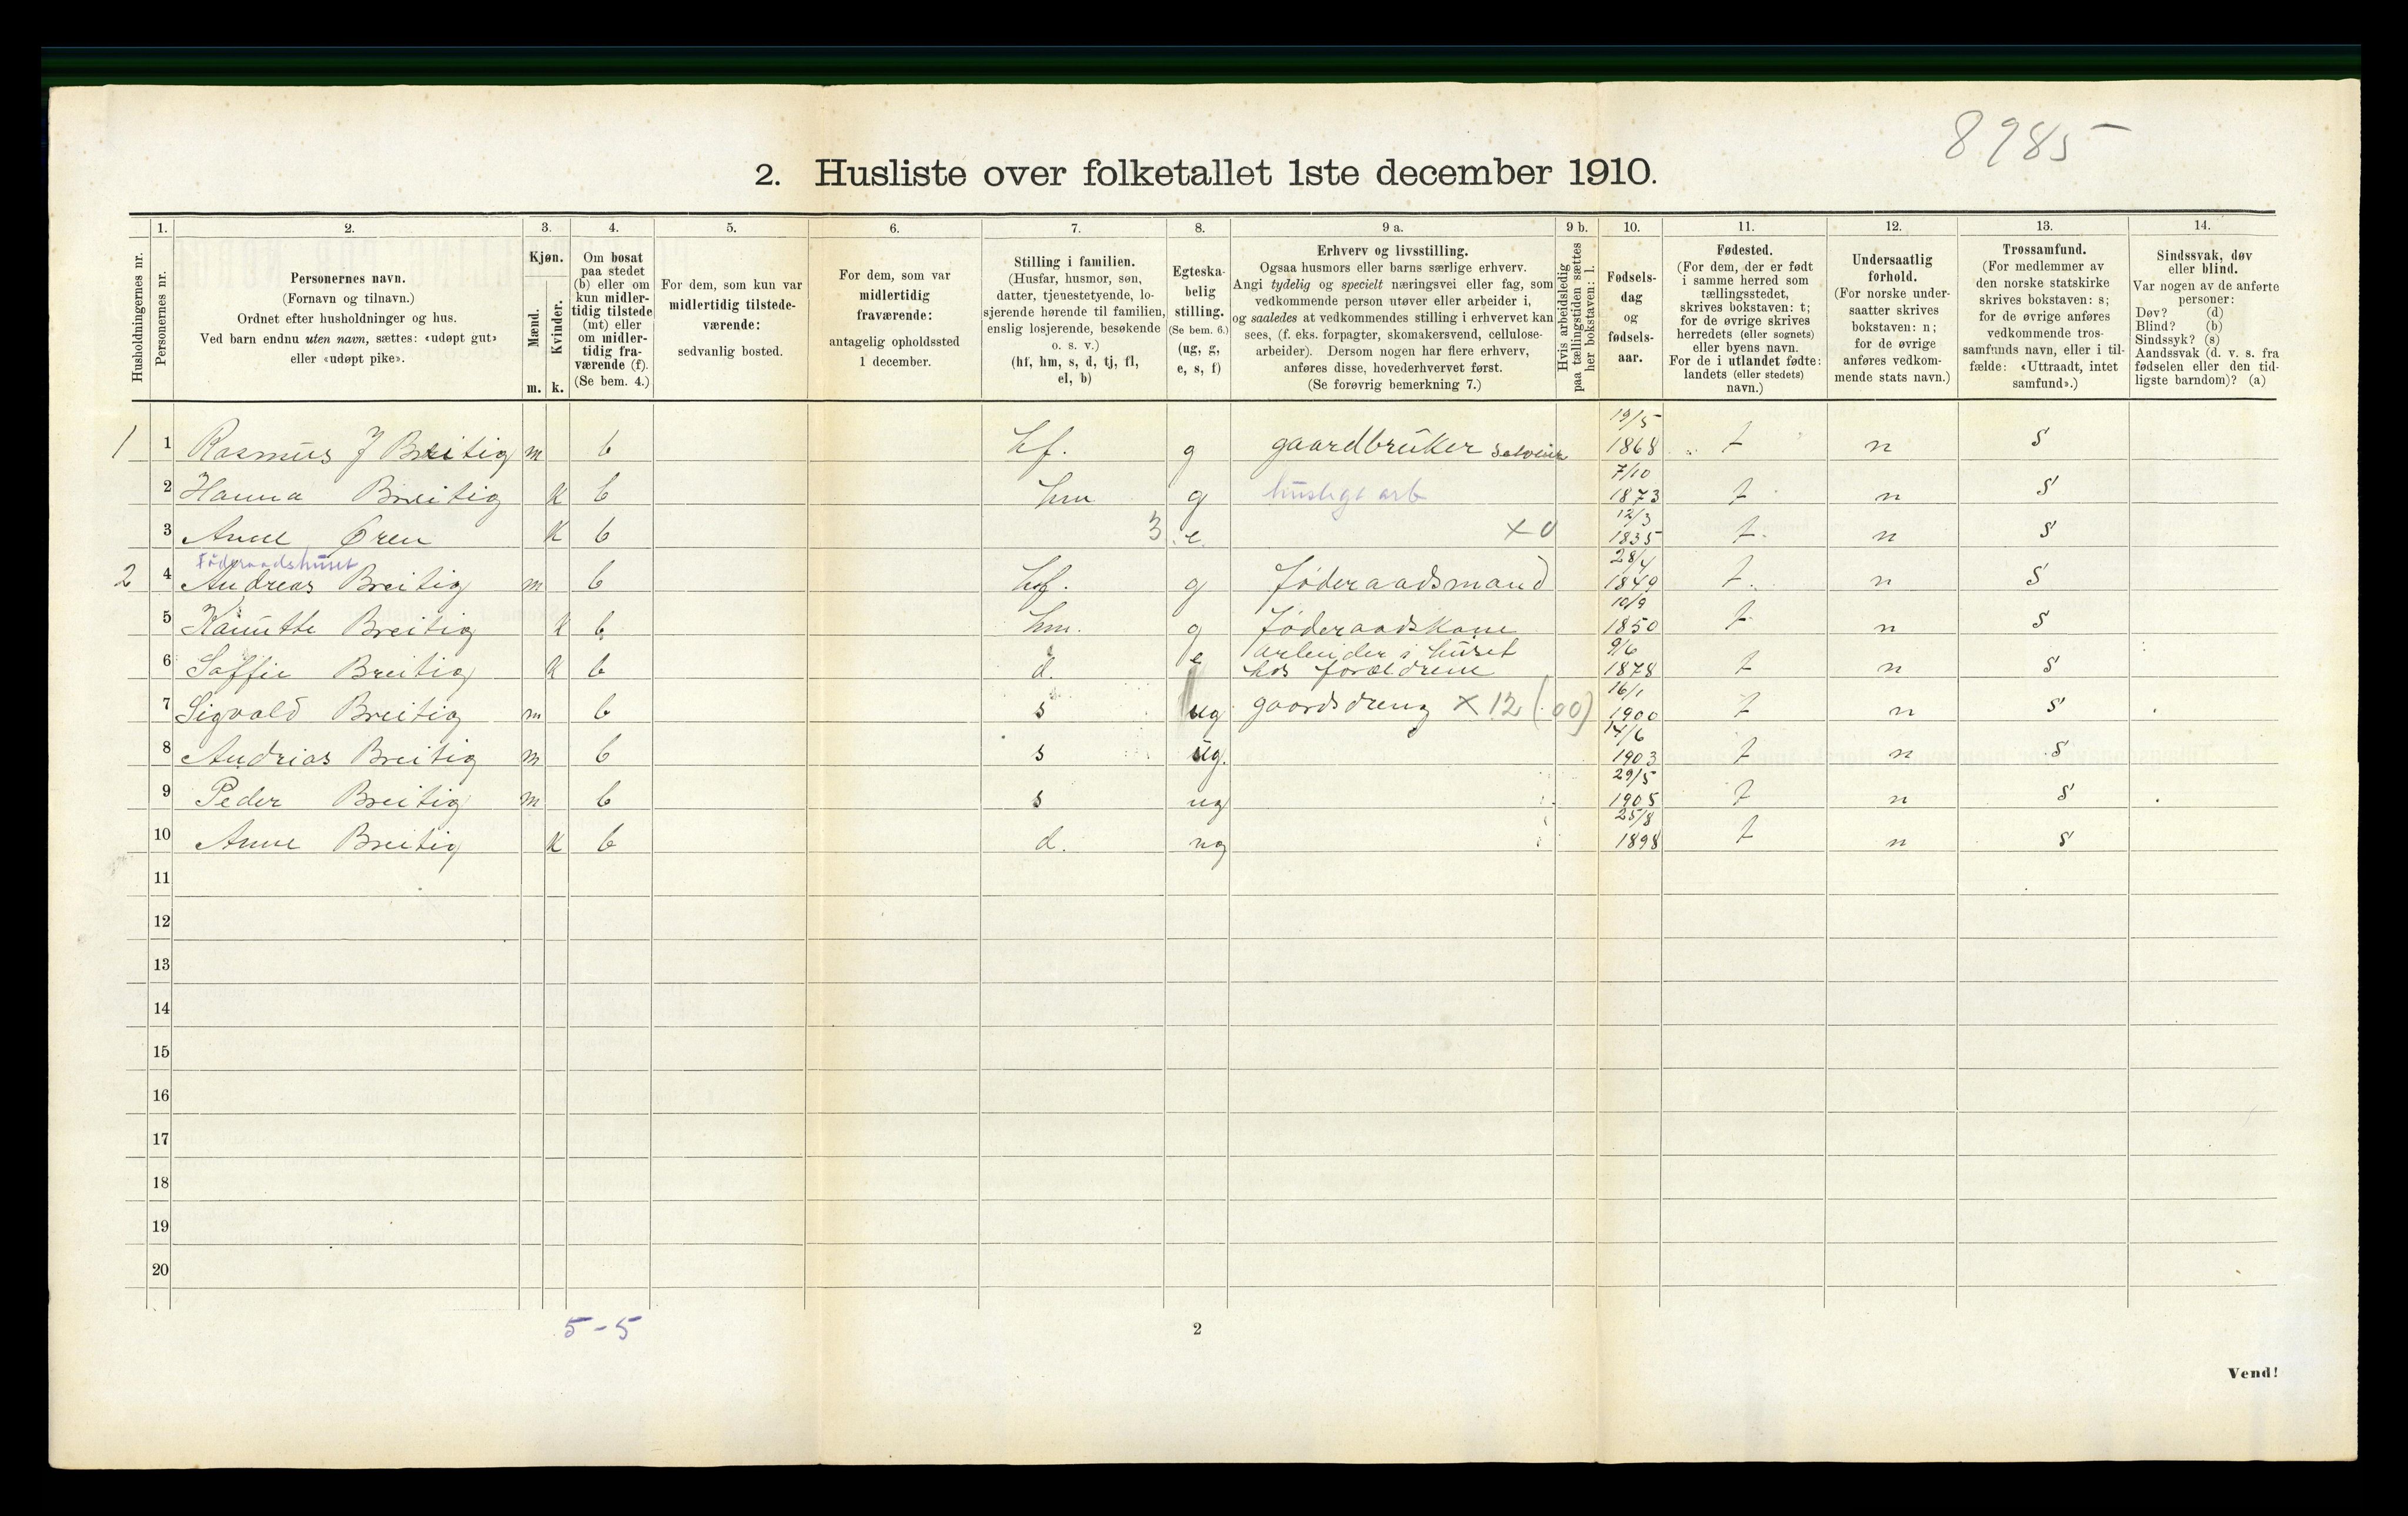 8985
2. Husliste over folketallet 1ste december 1910.
Husholdningernes nr.
1.
Personernes nr.
2.
Personernes navn.
(Fornavn og tilnavn.)
Ordnet efter husholdninger og hus.
Ved barn endnu uten navn, sættes: «udøpt gut»
eller «udøpt pike».
3.
Kjøn.
Mænd.
Kvinder.
m. k.
4.
Om bosat
paa stedet
(b) eller om
kun midler-
tidig tilstede
(mt) eller
om midler-
tidig fra-
værende (f).
(Se bem. 4.)
5.
For dem, som kun var
midlertidig tilstede-
værende:
sedvanlig bosted.
6.
For dem, som var
midlertidig
fraværende:
antagelig opholdssted
1 december.
7.
Stilling i familien.
(Husfar, husmor, søn,
datter, tjenestetyende, lo-
sjerende hørende til familien,
enslig losjerende, besøkende
o. s. v.)
(hf, hm, s, d, tj, fl,
el, b)
8.
Egteska-
belig
stilling.
(Se bem. 6.)
(ug, g,
e, s, f)
9 a.
Erhverv og livsstilling.
Ogsaa husmors eller barns særlige erhverv.
Angi tydelig og specielt næringsvei eller fag, som
vedkommende person utøver eller arbeider i,
og saaledes at vedkommendes stilling i erhvervet kan
sees, (f. eks. forpagter, skomakersvend, cellulose-
arbeider). Dersom nogen har flere erhverv,
anføres disse, hovederhvervet først.
(Se forøvrig bemerkning 7.)
9 b.
Hvis arbeidsledig
paa tællingstiden sættes
her bokstaven: l.
10.
Fødsels-
dag
og
fødsels-
aar.
11.
Fødested.
(For dem, der er født
i samme herred som
tællingsstedet,
skrives bokstaven: t;
for de øvrige skrives
herredets (eller sognets)
eller byens navn.
For de i utlandet fødte:
landets (eller stedets)
navn.)
12.
Undersaatlig
forhold.
(For norske under-
saatter skrives
bokstaven: n;
for de øvrige
anføres vedkom-
mende stats navn.)
13.
Trossamfund.
(For medlemmer av
den norske statskirke
skrives bokstaven: s;
for de øvrige anføres
vedkommende tros-
samfunds navn, eller i til-
fælde: «Uttraadt, intet
samfund».)
14.
Sindssvak, døv
eller blind.
Var nogen av de anførte
personer:
Døv? (d)
Blind? (b)
Sindssyk? (s)
Aandssvak (d. v. s. fra
fødselen eller den tid-
ligste barndom)? (a)
1 1 Rasmus J Breitig m b hf. g gaardbruker selveier 19/5 1868 t n s
2 Hanna Breitig k b hm g huslige arb 7/10 1873 t n s
3 Anne Øren k b 3 e x 0 12/3 1835 t. n s
Föderaadshuset
2 4 Andreas Breitig m b hf. g föderaadsmand 28/4 1849 t. n s
5 Kanutte Breitig k b hm. g föderaadskone 10/9 1850 t n s
6 Saffie Breitig k b d. e arbeider i huset hos forældrene 9/6 1878 t n s
7 Sigvald Breitig m b s ug gaardsdreng x 12 (00) 16/1 1900 t n s
8 Andrias Breitig m b s ug. 14/6 1903 t n s
9 Peder Breitig m b s ug 29/5 1905 t n s
10 Anne Breitig k b d. ug 25/8 1898 t n s
11
12
13
14
15
16
17
18
19
20
5-5
2
Vend!